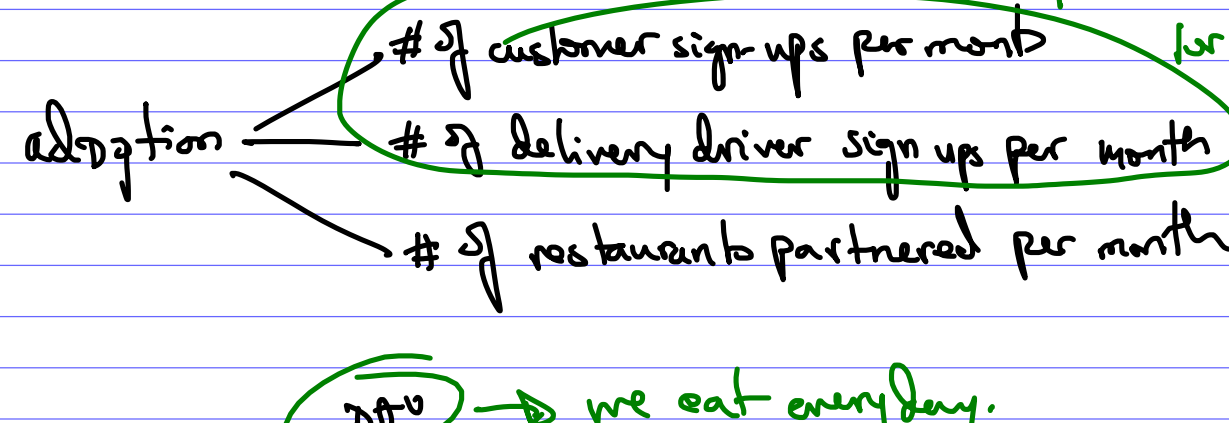 # of customer sign-ups per month
for
adoption
# of delivery driver sign ups per month
# of restaurants partnered per month
DAU → we eat everyday.